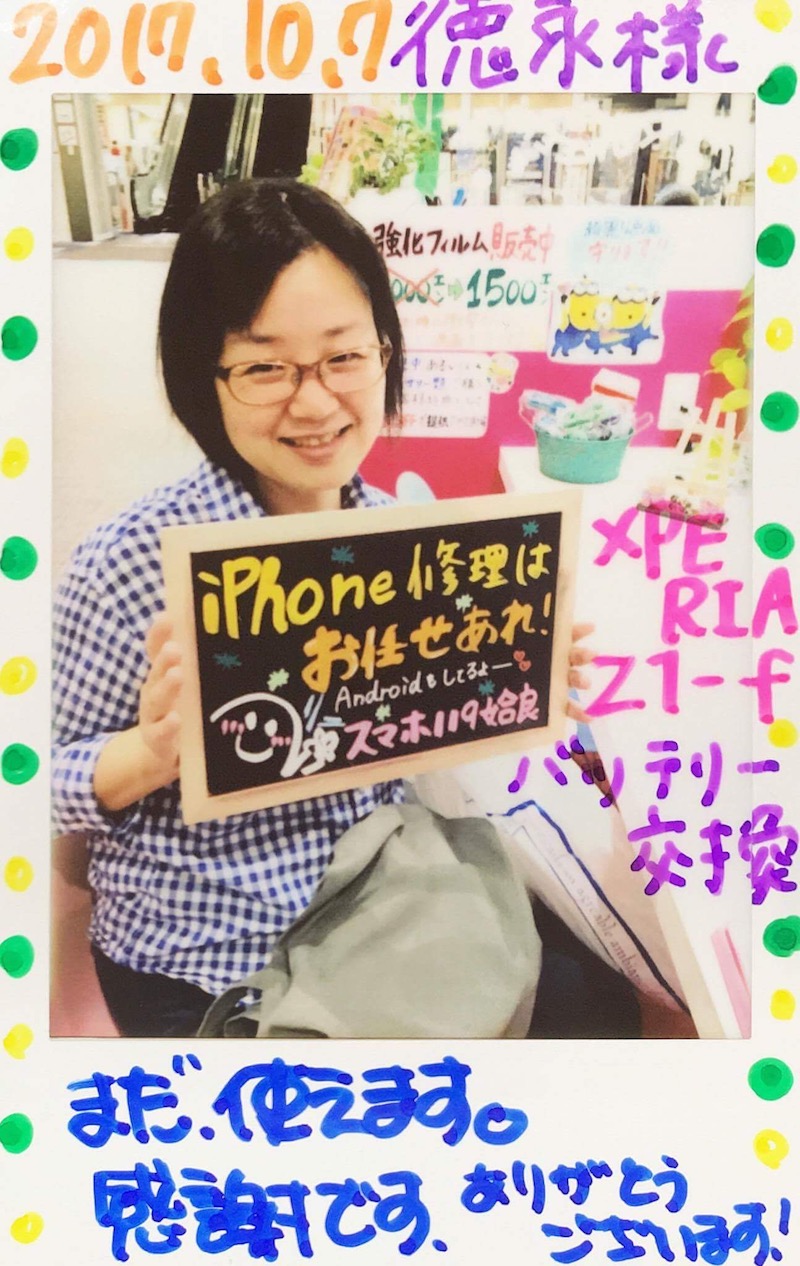 2017.10.7 徳永様
強化フィルム販売中
1500
iPhone修理は
お任せあれ!
Androidもしてるよー
スマホ119姶良
XPE
RIA
Z1-f
バッテリー
交換
まだ、使えます。
感謝です、ありがとう
ございます!